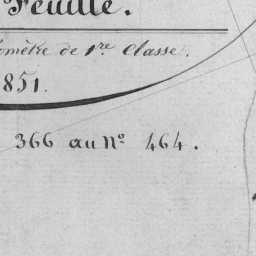 Feuille.
omètre de 1re Classe.
851.
366 au No 464.